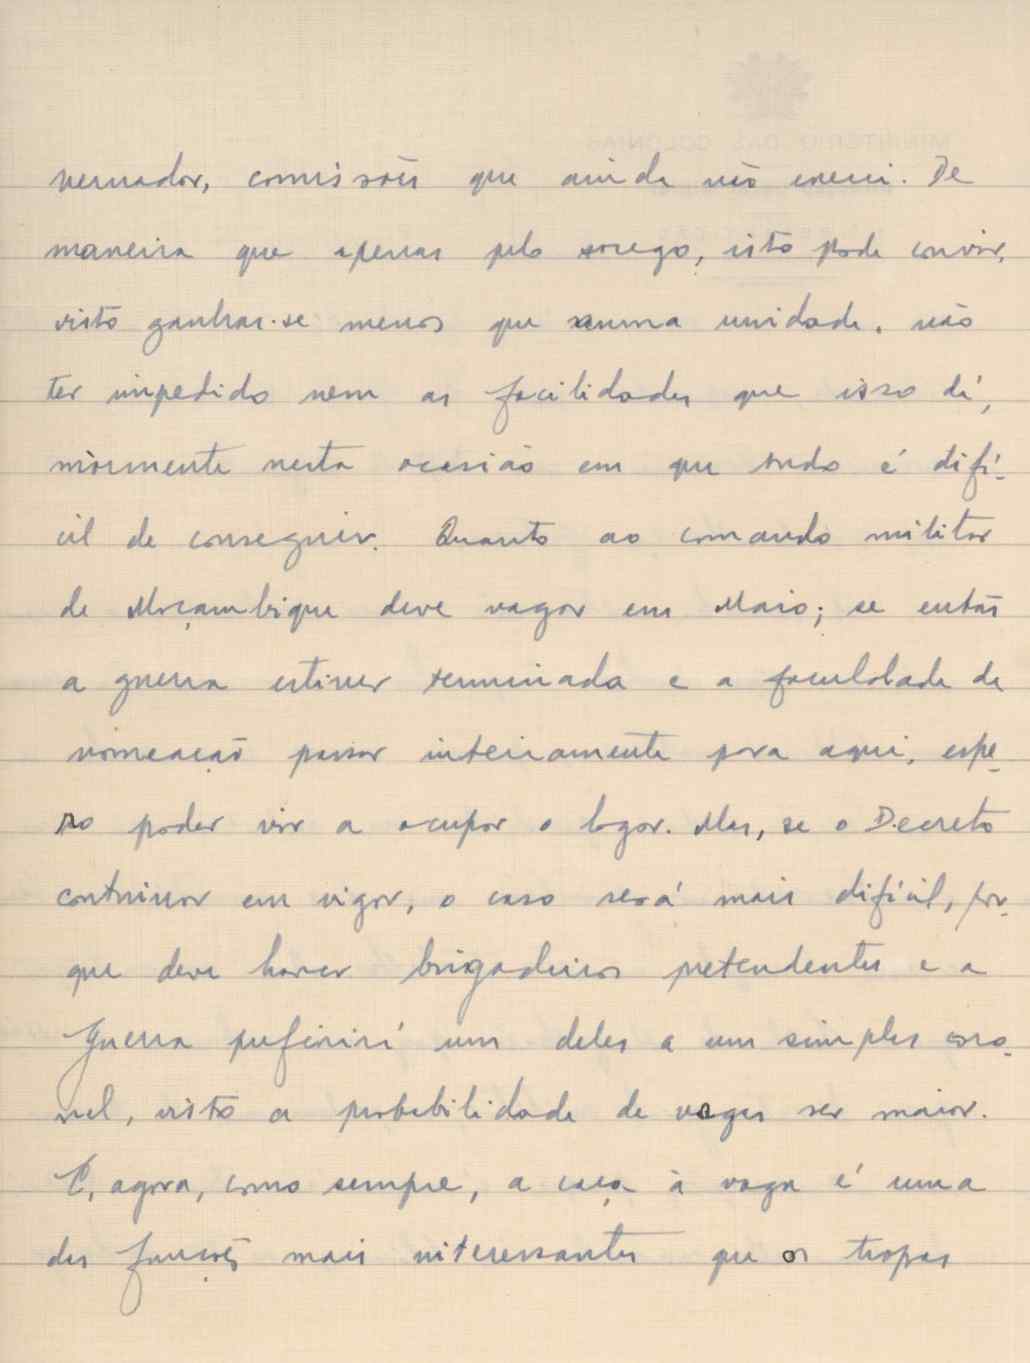 MINISTÉRIO DAS COLONIAS
vernador, comissões que ainda não exerci. De
maneira que apenas pelo socego, isto pode convir,
visto ganhar-se menos que numa unidade, não
ter impedido nem as facilidades que isso dá,
mòrmente nesta ocasião em que tudo é difí-
cil de conseguir. Quanto ao comando militar
de Moçambique deve vagar em Maio; se então
a guerra estiver terminada e a faculdade de
nomeação passar inteiramente para aqui, espe-
ro poder vir a ocupar o logar. Mas, se o Decreto
continuar em vigor, o caso será mais difícil, por-
que deve haver brigadeiros pretendentes e a
Guerra preferirá um deles a um simples coro-
nel, visto a probabilidade de vagas ser maior.
E, agora, como sempre, a caça à vaga é uma
das funções mais interessantes que as tropas